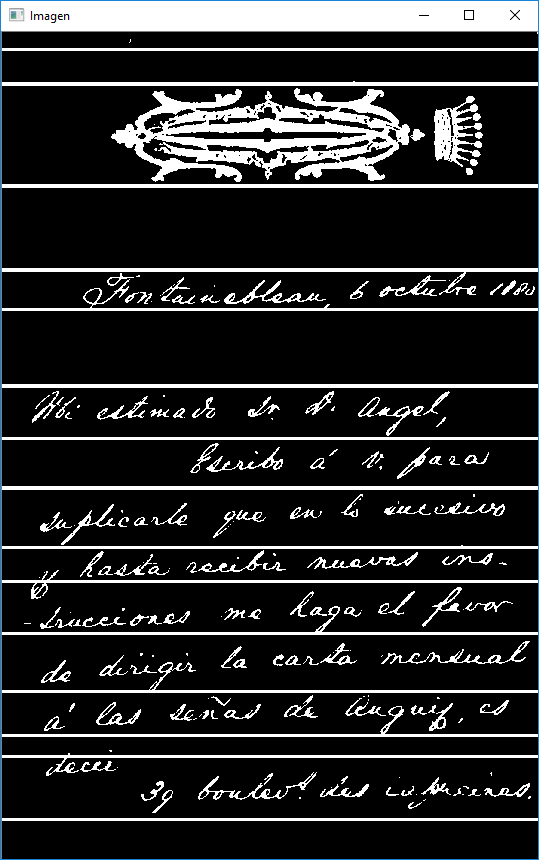 Imagen
Fontainebleau, 6 octubre 1880
Mi estimado Sr. D. Angel,
Escribo á V. para
suplicarle que en lo sucesivo
y hasta recibir nuevas ins-
-trucciones me haga el favor
de dirigir la carta mensual
á las señas de Auguif, es
decir
39 boulevt. des capucines.